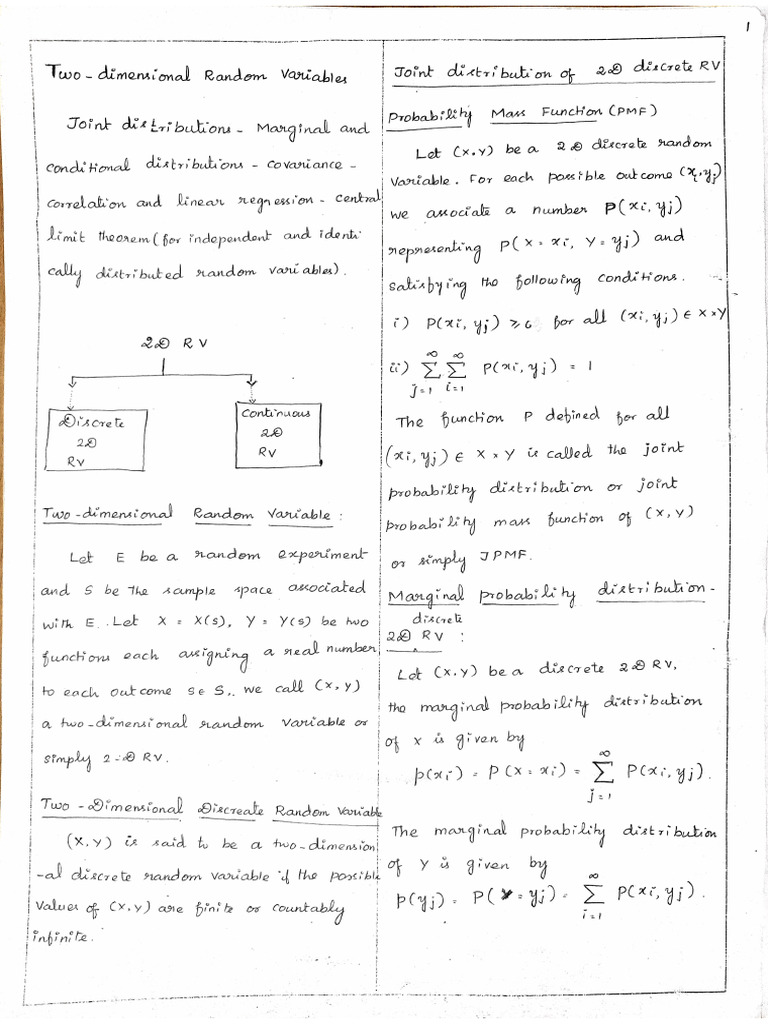 1
Two-dimensional Random Variables
Joint distributions - Marginal and
conditional distributions - covariance -
correlation and linear regression - central
limit theorem (for independent and identi
cally distributed random variables).
2D RV
Discrete
2D
RV
Continuous
2D
RV
Two-dimensional Random Variable :
Let E be a random experiment
and S be the sample space associated
with E. Let X = X(s), Y = Y(s) be two
functions each assigning a real number
to each outcome s ∈ S, we call (X, Y)
a two-dimensional random variable or
simply 2-D RV.
Two-Dimensional Discreate Random Variable
(X, Y) is said to be a two-dimension
-al discrete random variable if the possible
values of (X, Y) are finite or countably
infinite.
Joint distribution of 2D discrete RV
Probability Mass Function (PMF)
Let (X, Y) be a 2D discrete random
variable. For each possible outcome (xi, yj)
we associate a number P(xi, yj)
representing P(X = xi, Y = yj) and
satisfying the following conditions.
i) P(xi, yj) ≥ 0 for all (xi, yj) ∈ X × Y
ii) ∞∑j=1 ∞∑i=1 P(xi, yj) = 1
The function P defined for all
(xi, yj) ∈ X × Y is called the joint
probability distribution or joint
probability mass function of (X, Y)
or simply JPMF.
Marginal probability distribution -
discrete
2D RV :
Let (X, Y) be a discrete 2D RV,
the marginal probability distribution
of X is given by
p(xi) = P(X = xi) = ∞∑j=1 P(xi, yj).
The marginal probability distribution
of Y is given by
p(yj) = P(Y = yj) = ∞∑i=1 P(xi, yj).